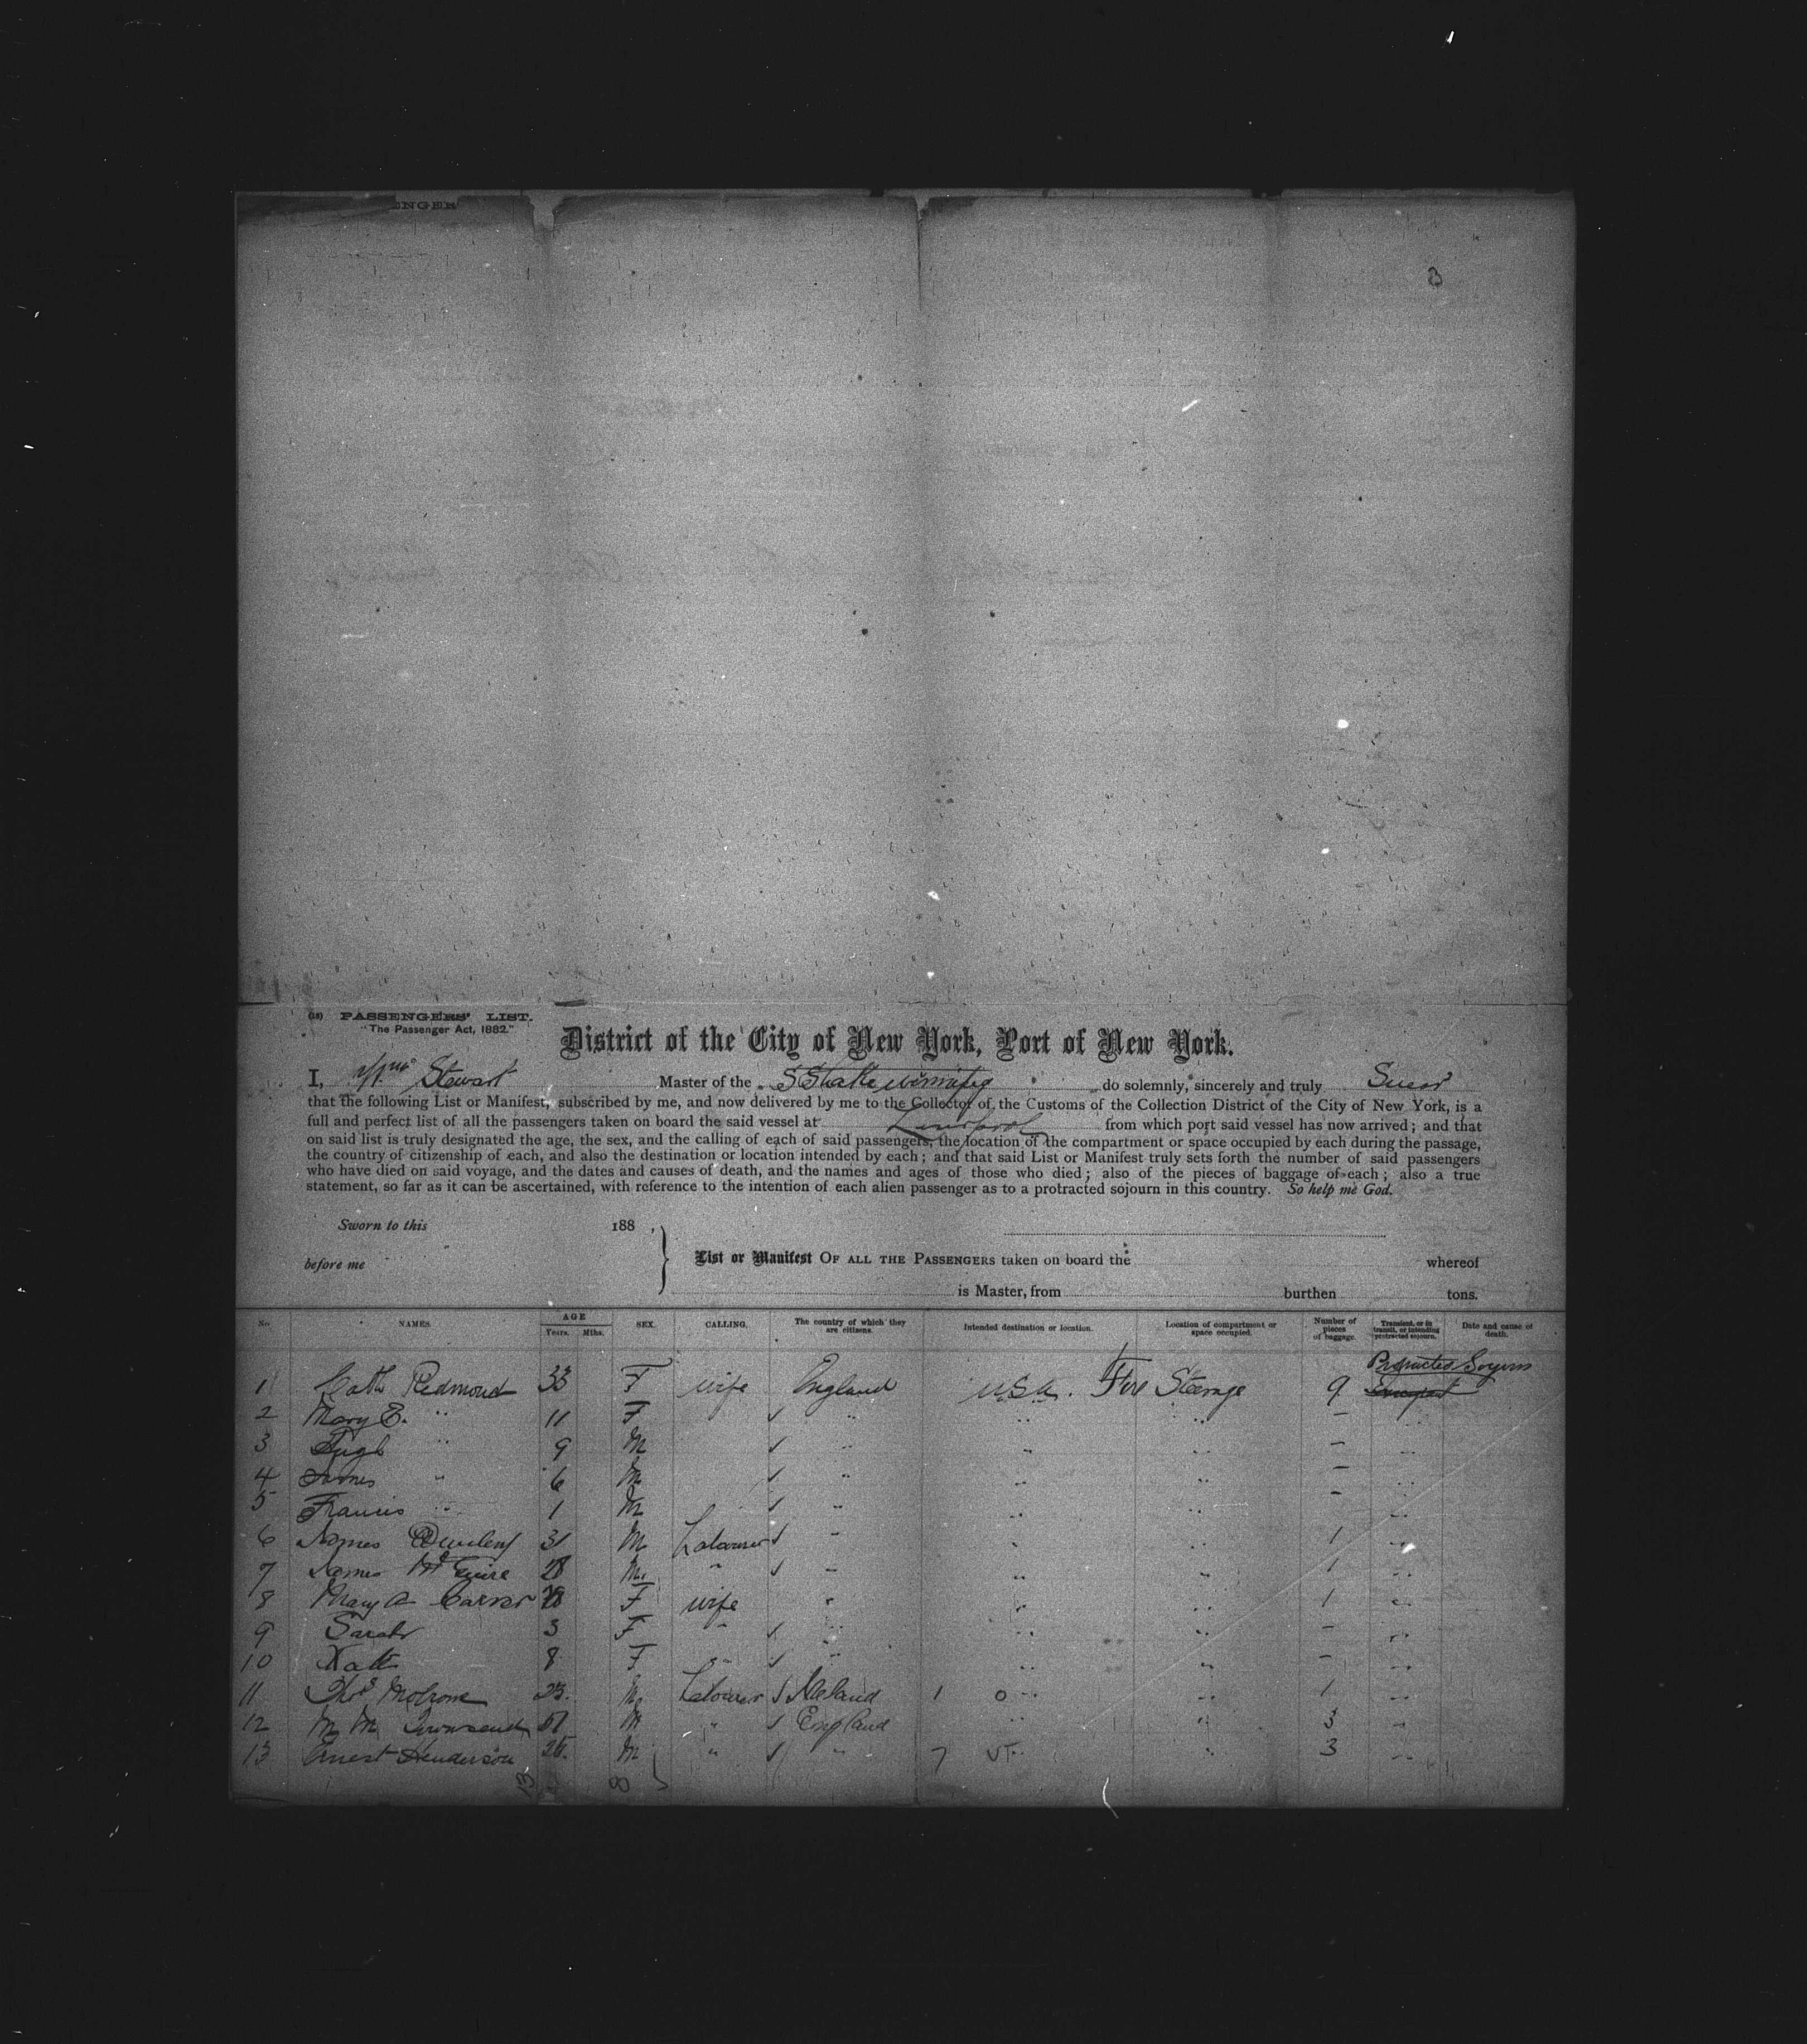 ENGER
3
(18) PASSENGERS' LIST.
"The Passenger Act, 1882."
District of the City of New York, Port of New York.
I, Wm Stewart Master of the SS Lake Winnipeg do solemnly, sincerely and truly Swear
that the following List or Manifest, subscribed by me, and now delivered by me to the Collector of the Customs of the Collection District of the City of New York, is a
full and perfect list of all the passengers taken on board the said vessel at Liverpool from which port said vessel has now arrived; and that
on said list is truly designated the age, the sex, and the calling of each of said passengers, the location of the compartment or space occupied by each during the passage,
the country of citizenship of each, and also the destination or location intended by each; and that said List or Manifest truly sets forth the number of said passengers
who have died on said voyage, and the dates and causes of death, and the names and ages of those who died; also of the pieces of baggage of each; also a true
statement, so far as it can be ascertained, with reference to the intention of each alien passenger as to a protracted sojourn in this country. So help me God.
Sworn to this 188 ,
before me
List or Manifest OF ALL THE PASSENGERS taken on board the whereof
is Master, from burthen tons.
No. NAMES. AGE Years. Mths. SEX. CALLING. The country of which they are citizens. Intended destination or location. Location of compartment or space occupied. Number of pieces of baggage. Transient, or in transit, or intending protracted sojourn. Date and cause of death.
Protracted
1 Cath Redmond 33 F wife England U.S.A. Fore Steerage 9
2 Mary E. " 11 F " " " - "
3 Hugh " 9 M " " " - "
4 James " 6 M " " " - "
5 Francis " 1 M " " " - "
6 James 31 M Labourer " " " 1 "
7 James McGuire 28 M " " " " 1 "
8 Mary A Carver F wife " " " 1 "
9 Sarah 3 F " " " " - "
10 Kate 8 F " " " " - "
11 Thos 23 M Labourer Ireland 1 O " " 1 "
12 M M Townsend M " England " " 3 "
13 Ernest Henderson M " " 7 VT " " 3 "
13 8